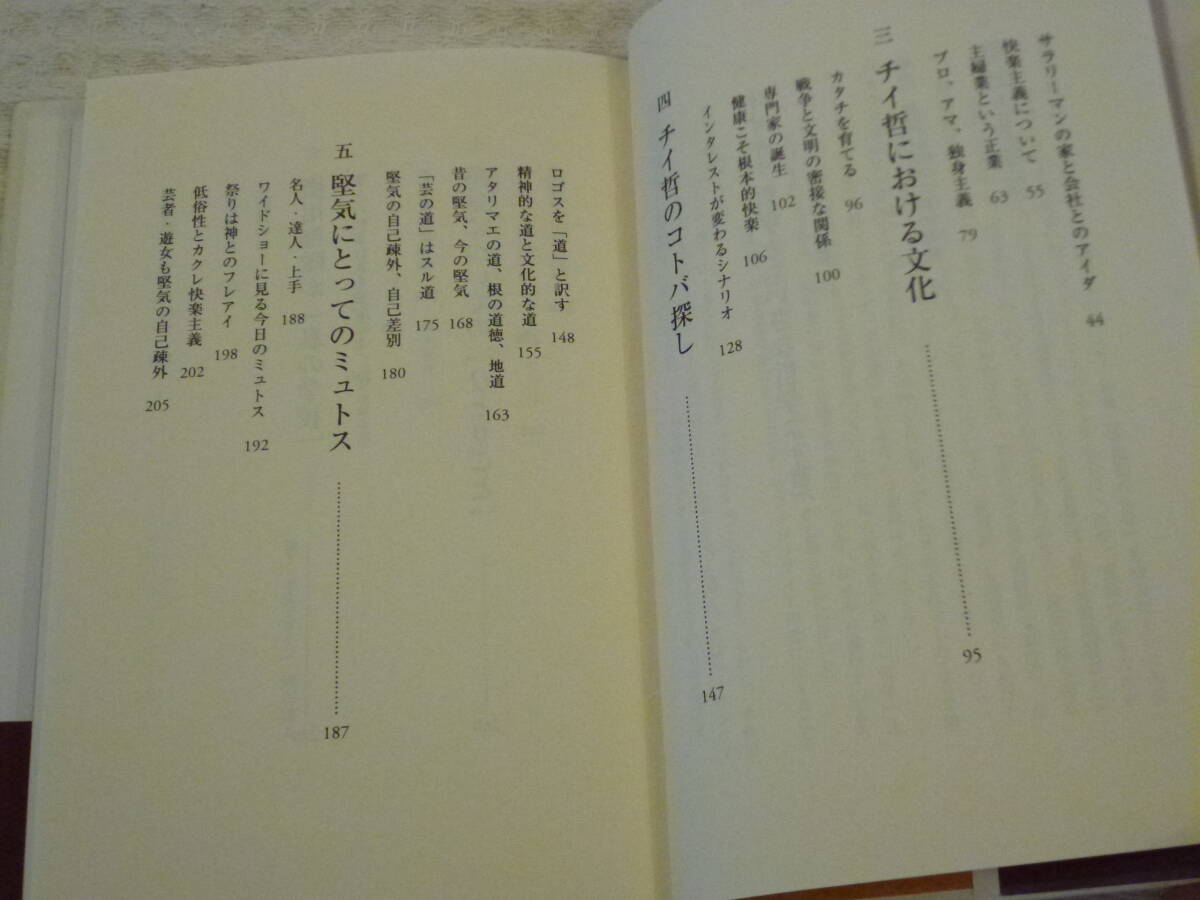 サラリーマンの家と会社とのアイダ 44
快楽主義について 55
主婦業という正業 63
プロ、アマ、独身主義 79
三 チイ哲における文化 95
カタチを育てる 96
戦争と文明の密接な関係 100
専門家の誕生 102
健康こそ根本的快楽 106
インタレストが変わるシナリオ 128
四 チイ哲のコトバ探し 147
ロゴスを「道」と訳す 148
精神的な道と文化的な道 155
アタリマエの道、根の道徳、地道 163
昔の堅気、今の堅気 168
「芸の道」はスル道 175
堅気の自己疎外、自己差別 180
五 堅気にとってのミュトス 187
名人・達人・上手 188
ワイドショーに見る今日のミュトス 192
祭りは神とのフレアイ 198
低俗性とカクレ快楽主義 202
芸者・遊女も堅気の自己疎外 205